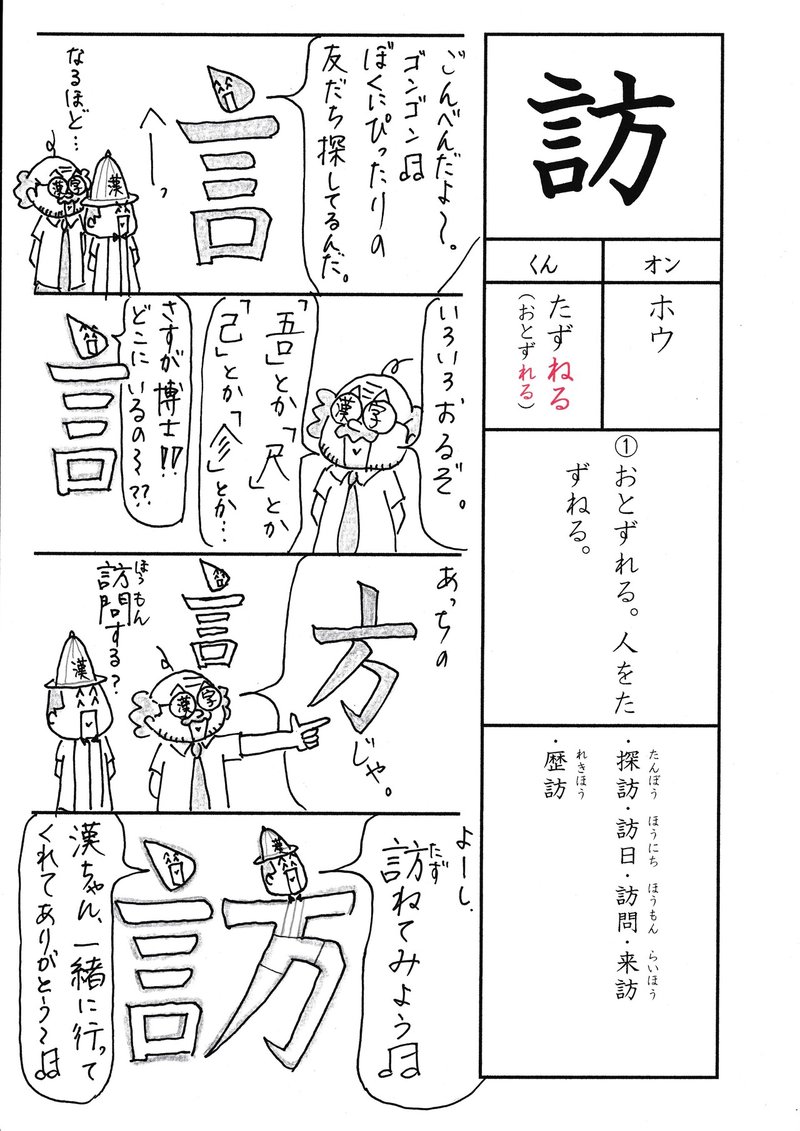 訪
オン
くん
ホウ
たずねる
(おとずれる)
①おとずれる。人をた
ずねる。
・探訪・訪日・訪問・来訪
たんぼう ほうにち ほうもん らいほう
・歴訪
れきほう
ごんべんだよ〜。
ゴンゴン♫
ぼくにぴったりの
友だち探してるんだ。
言
へーっ
なるほど…
漢字
漢
いろいろおるぞ。
「五口」とか「尺」とか
「己」とか「㐱」とか…
漢字
さすが博士!!
どこにいるの〜??
言
あっちの
方
じゃ。
言
漢字
訪問する?
ほうもん
漢
よーし、
訪ねてみよう♫
たず
漢
訪
漢ちゃん、一緒に行って
くれてありがとう〜♫